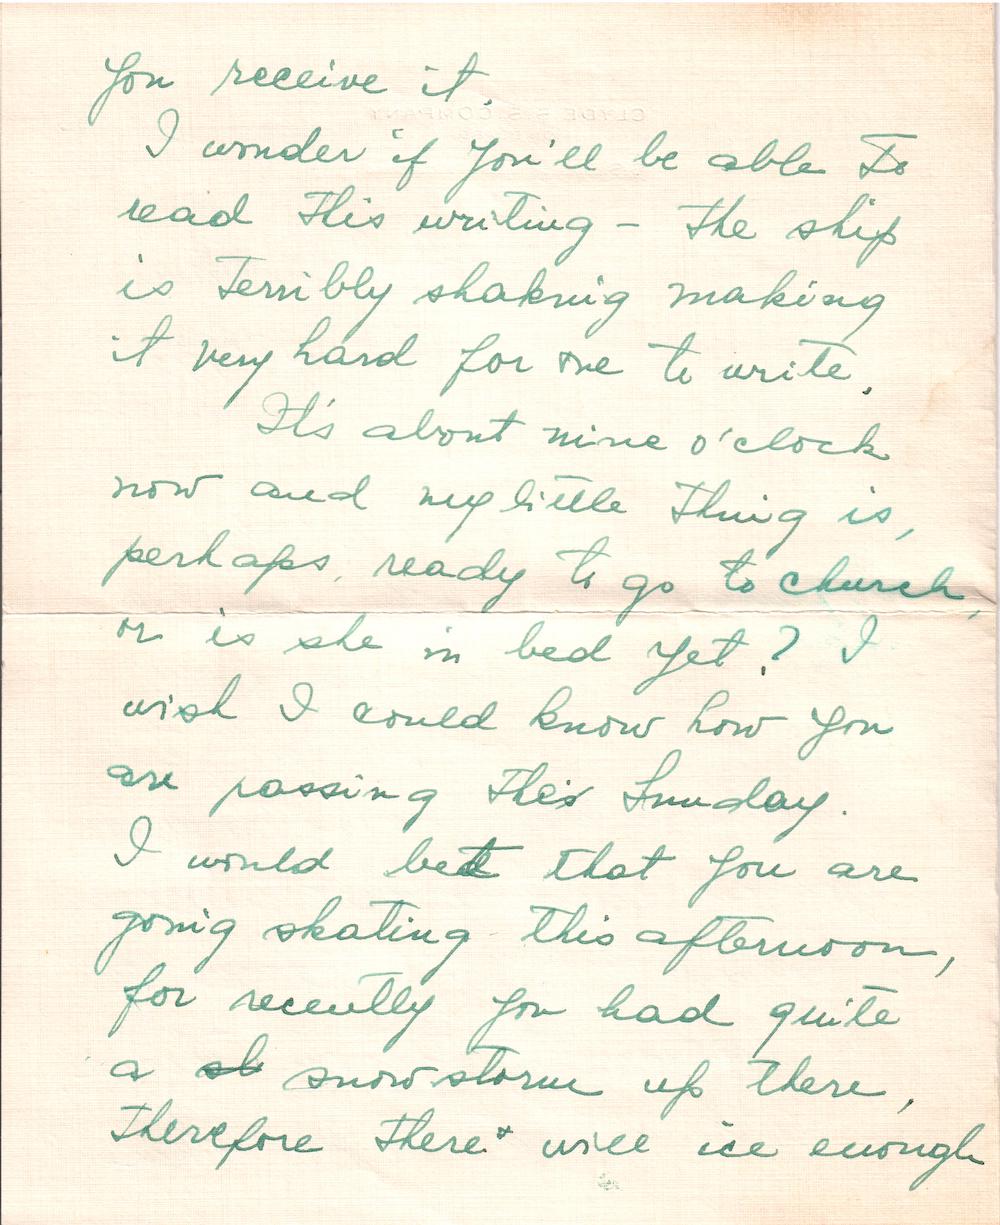 you receive it.
I wonder if you'll be able to
read this writing – the ship
is terribly shaking making
it very hard for me to write.
It's about nine o'clock
now and my little thing is,
perhaps, ready to go to church,
or is she in bed yet? I
wish I could know how you
are passing this Sunday.
I would bet that you are
going skating this afternoon,
for recently you had quite
a sh snow storm up there,
therefore there will ice enough
CLYDE S.S. COMPANY